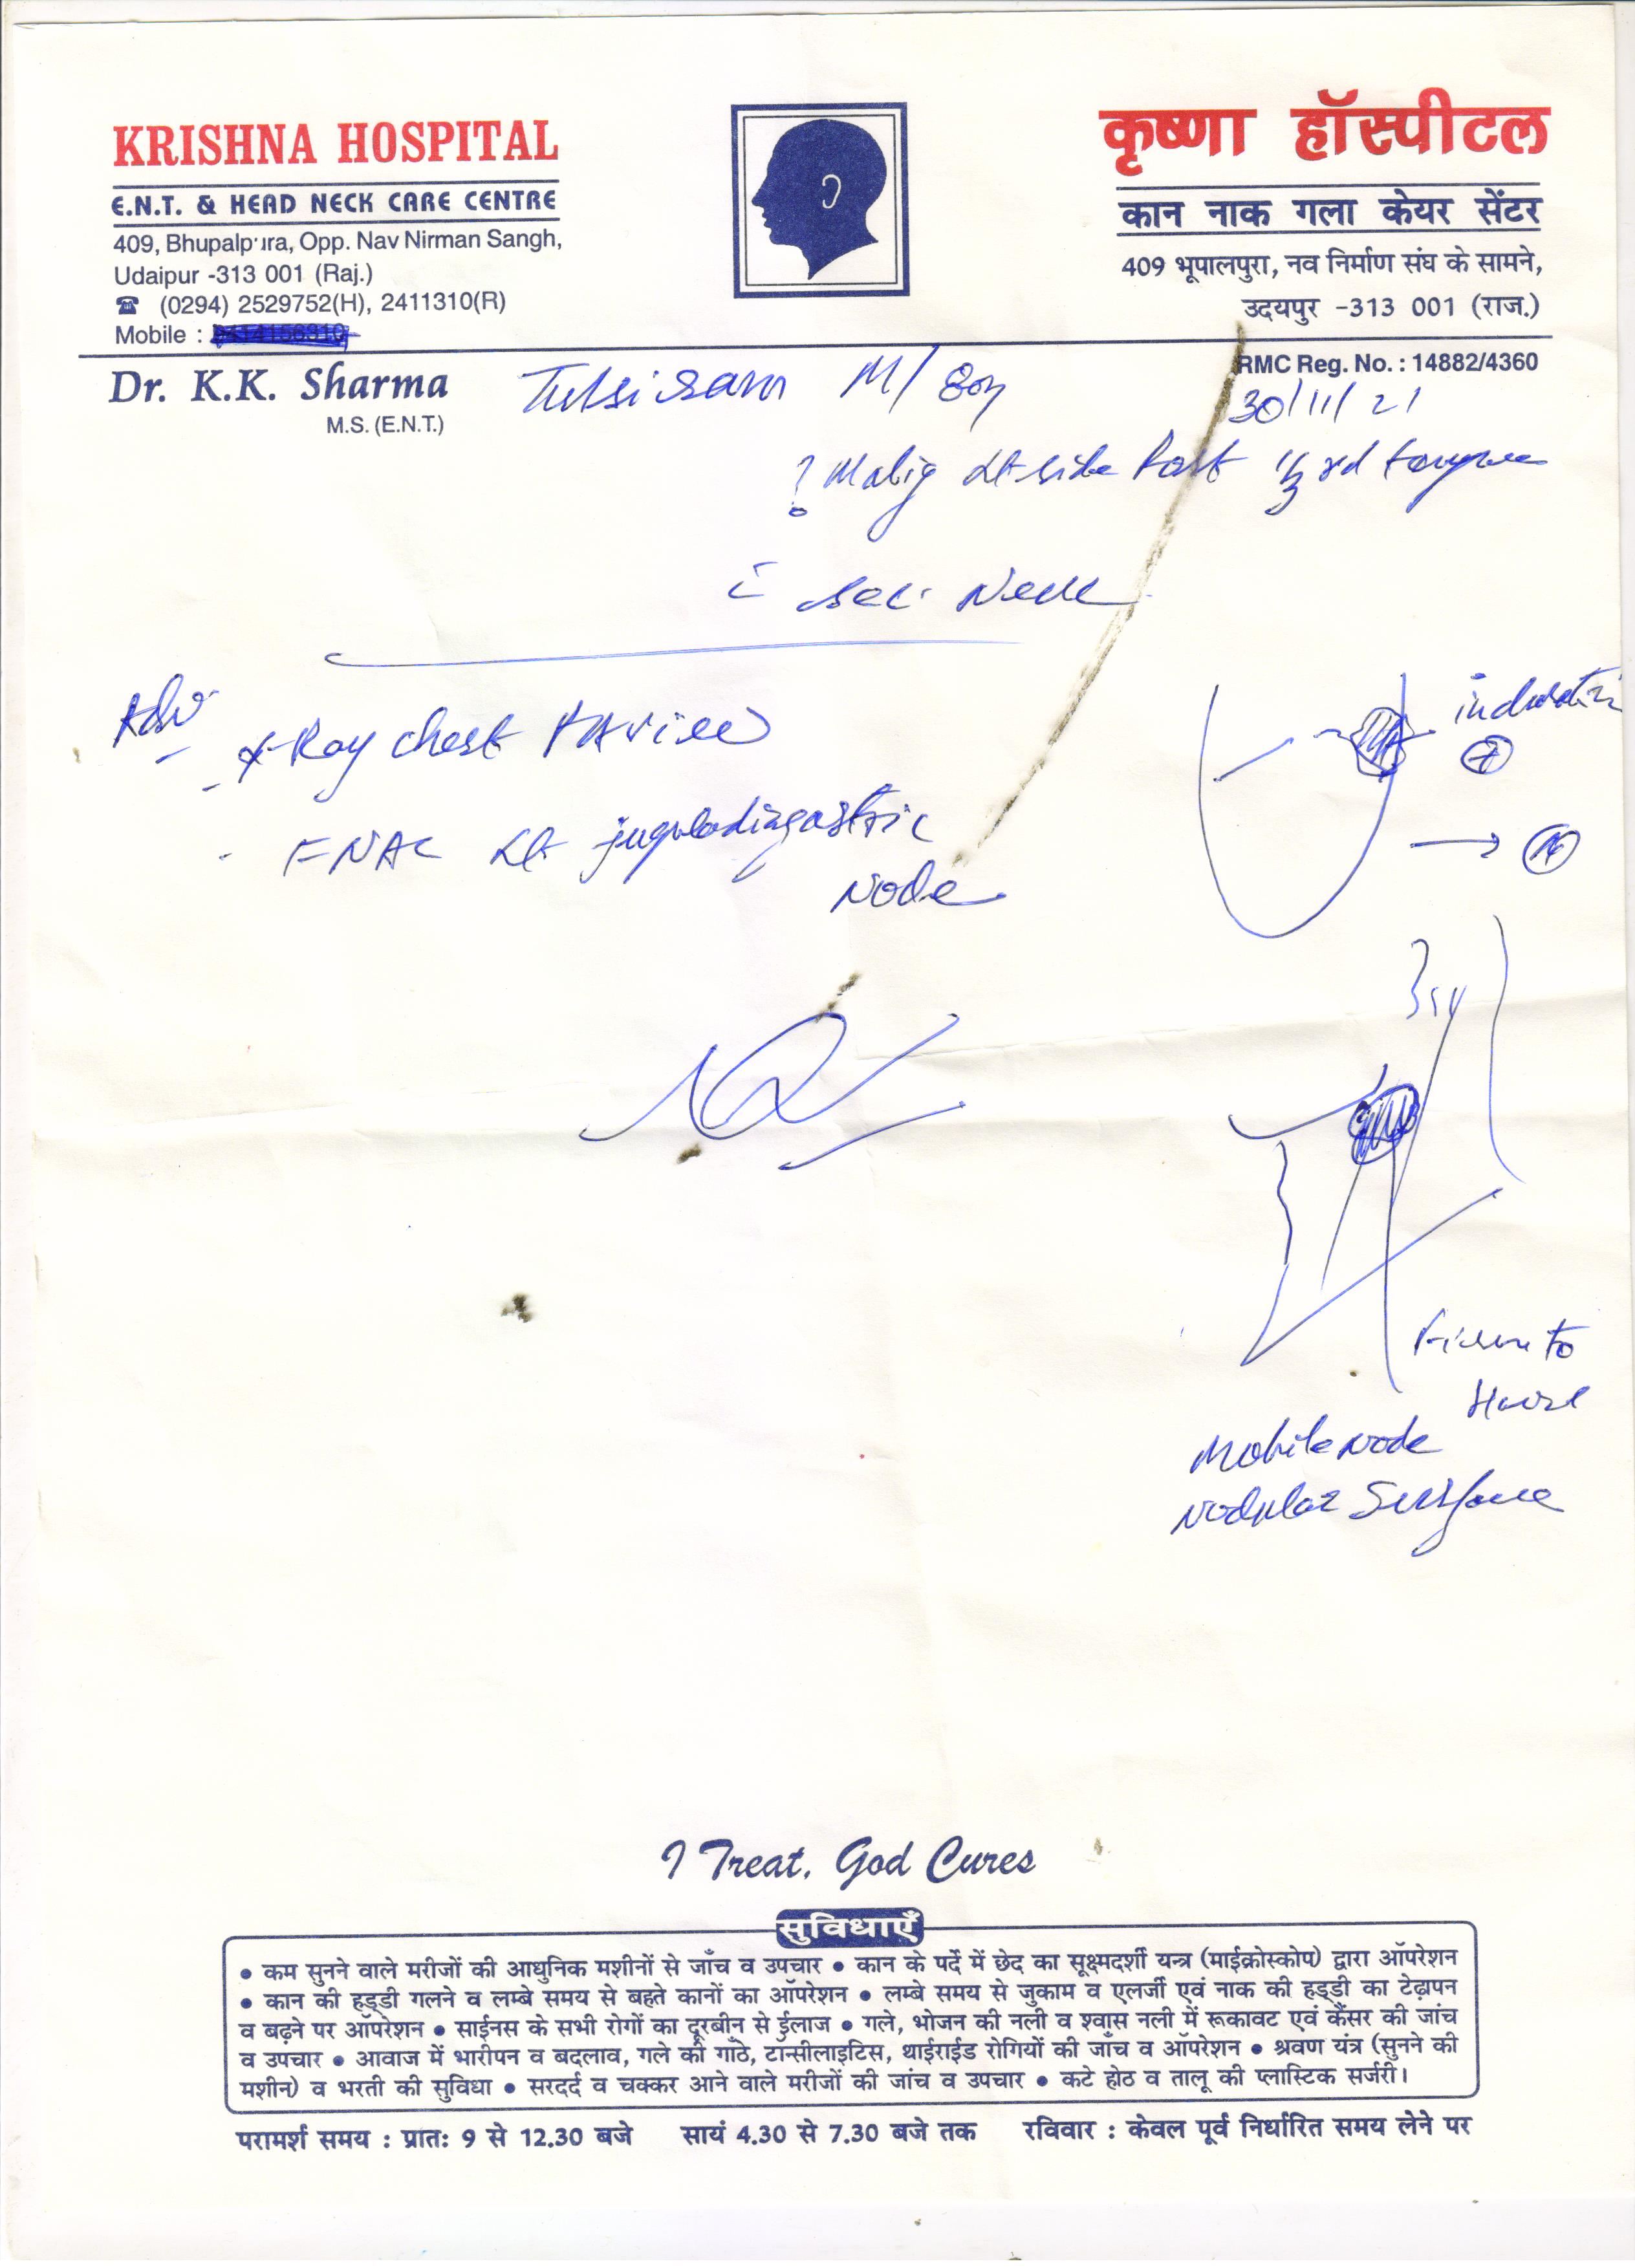 KRISHNA HOSPITAL
E.N.T. & HEAD NECK CARE CENTRE
409, Bhupalpura, Opp. Nav Nirman Sangh,
Udaipur -313 001 (Raj.)
☎ (0294) 2529752(H), 2411310(R)
Mobile :
कृष्णा हॉस्पीटल
कान नाक गला केयर सेंटर
409 भूपालपुरा, नव निर्माण संघ के सामने,
उदयपुर -313 001 (राज.)
RMC Reg. No. : 14882/4360
Dr. K.K. Sharma
M.S. (E.N.T.)
Tulsiram M/80y
30/11/21
? Malig Lt side Post 1/3rd tongue
c̄ Sec. Neck
Adv
- X-Ray chest PA view
- FNAC Lt jugulodiagastric
Node
induration
+
→ N
Firm to
Hard
Mobile Node
Nodular Surface
I Treat, God Cures
सुविधाएँ
• कम सुनने वाले मरीजों की आधुनिक मशीनों से जाँच व उपचार • कान के पर्दे में छेद का सूक्ष्मदर्शी यन्त्र (माईक्रोस्कोप) द्वारा ऑपरेशन
• कान की हड्डी गलने व लम्बे समय से बहते कानों का ऑपरेशन • लम्बे समय से जुकाम व एलर्जी एवं नाक की हड्डी का टेढ़ापन
व बढ़ने पर ऑपरेशन • साईनस के सभी रोगों का दूरबीन से ईलाज • गले, भोजन की नली व श्वास नली में रूकावट एवं कैंसर की जांच
व उपचार • आवाज में भारीपन व बदलाव, गले की गाँठे, टान्सीलाइटिस, थाईराईड रोगियों की जाँच व ऑपरेशन • श्रवण यंत्र (सुनने की
मशीन) व भरती की सुविधा • सरदर्द व चक्कर आने वाले मरीजों की जांच व उपचार • कटे होठ व तालू की प्लास्टिक सर्जरी।
परामर्श समय : प्रातः 9 से 12.30 बजे सायं 4.30 से 7.30 बजे तक रविवार : केवल पूर्व निर्धारित समय लेने पर